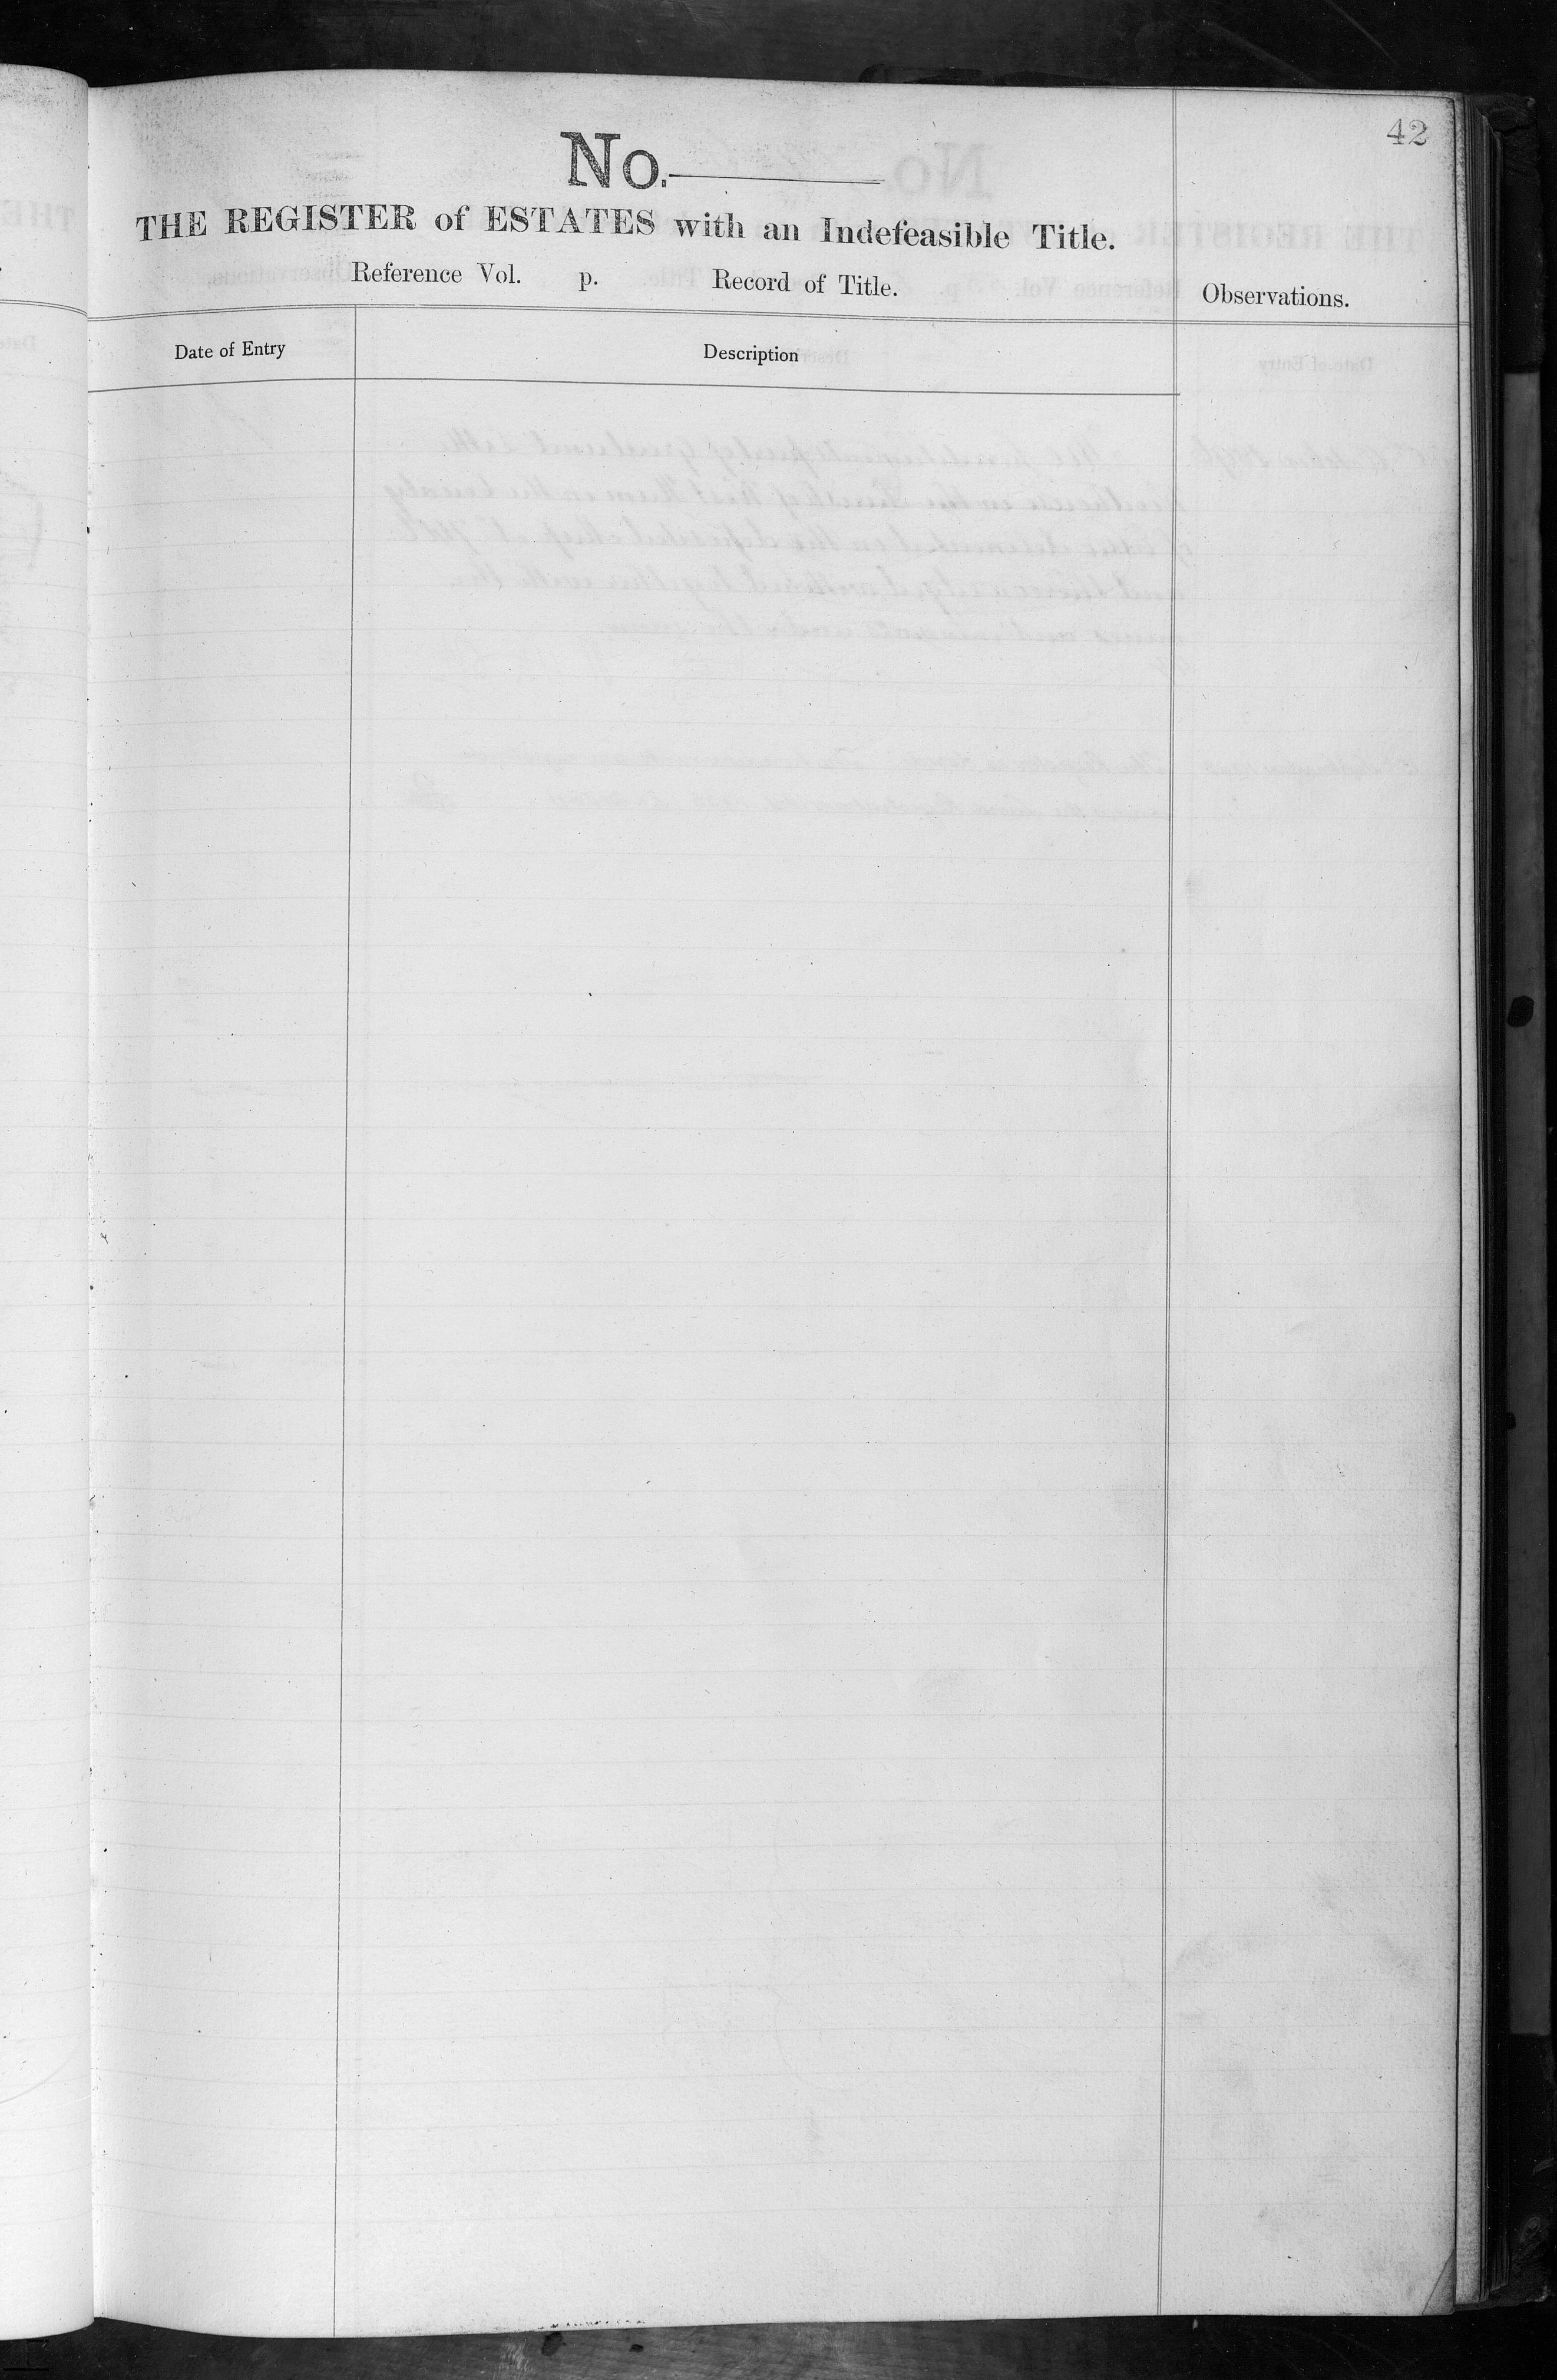 42
No.
THE REGISTER of ESTATES with an Indefeasible Title.
Reference Vol. p. Record of Title.
Observations.
Date of Entry
Description